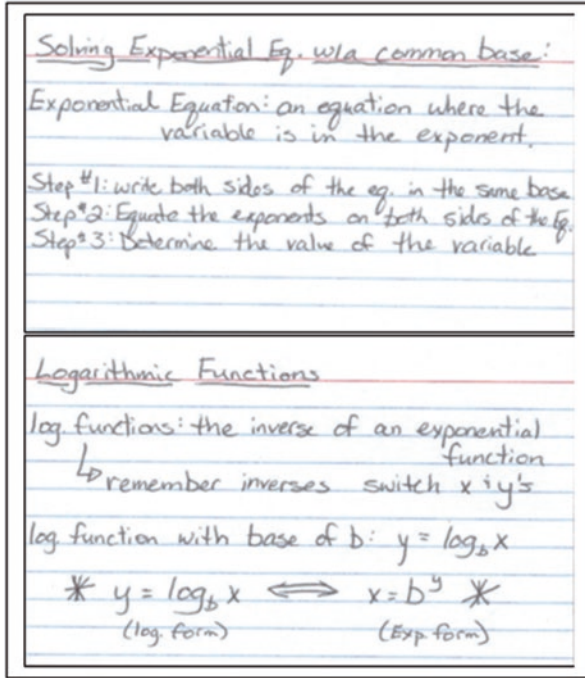 Solving Exponential Eq. w/a common base:
Exponential Equation: an equation where the
variable is in the exponent.
Step #1: write both sides of the eq. in the same base
Step #2: Equate the exponents on both sides of the Eq.
Step #3: Determine the value of the variable
Logarithmic Functions
log. functions: the inverse of an exponential
function
↳ remember inverses switch x & y's
log function with base of b: y = log_b x
* y = log_b x ⟺ x = b^y *
(log. form) (Exp. form)